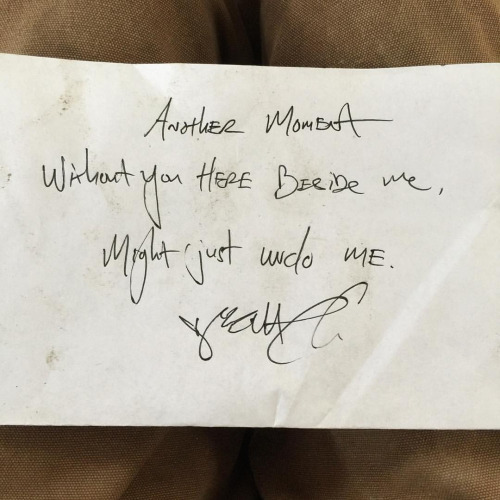 Another Moment
Without you Here Beside me,
Might just undo me.